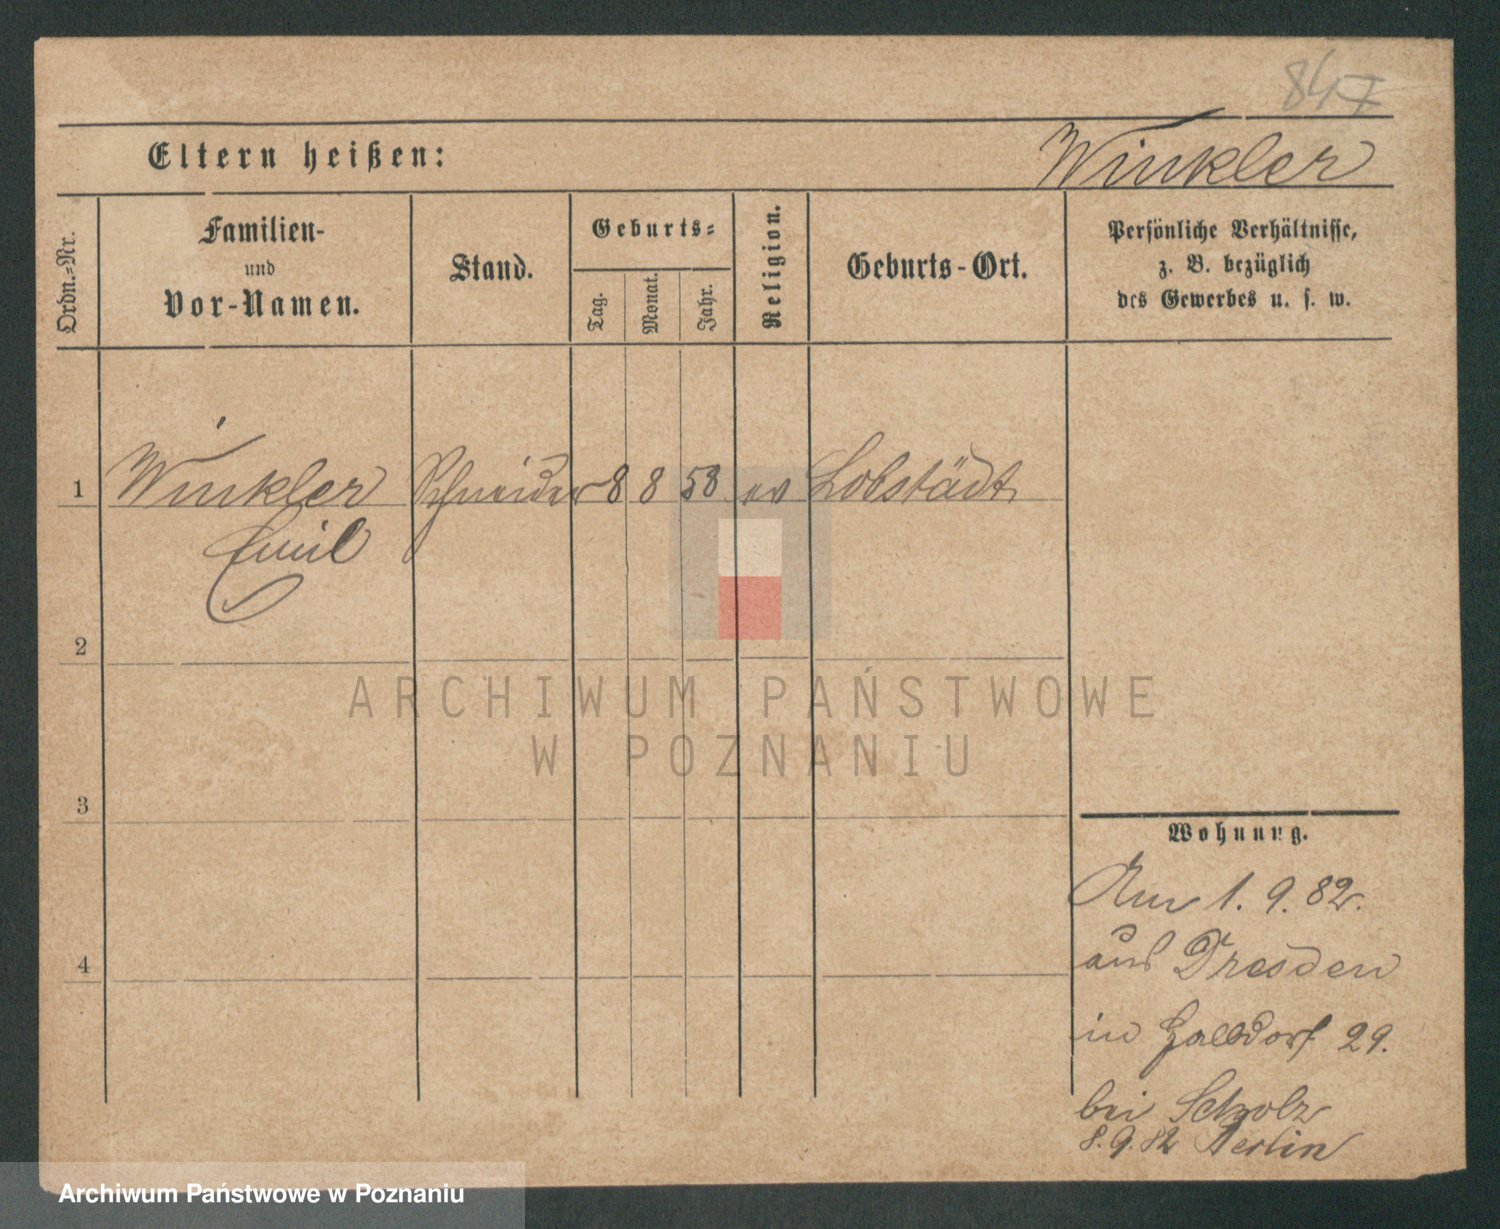 847
Eltern heißen: Winkler
Ordn.=Nr.
Familien-
und
Vor-Namen.
Stand.
Geburts=
Tag.
Monat.
Jahr.
Religion.
Geburts-Ort.
Persönliche Verhältnisse,
z. B. bezüglich
des Gewerbes u. s. w.
1 Winkler Schneider 8 8 58 ev Lobstädt
Emil
2
3
4
ARCHIWUM PAŃSTWOWE
W POZNANIU
Wohnung.
Am 1. 9. 82.
aus Dresden
in Halbdorf 29.
bei Scholz
8. 9. 82 Berlin
Archiwum Państwowe w Poznaniu